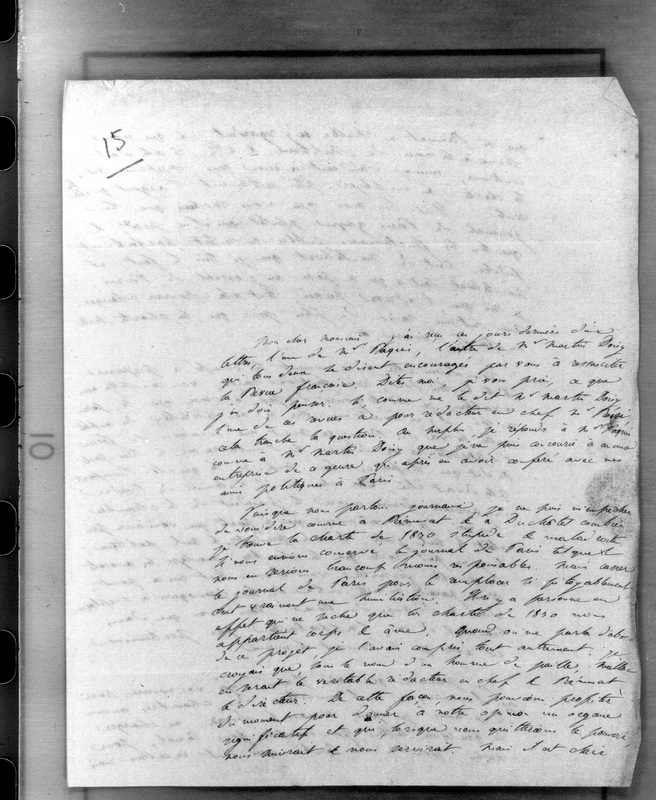 15
Mon cher monsieur, j'ai reçu ces jours derniers deux
lettres, l'une de Mr Pagès, l'autre de Mr Martin Doisy
qui tous deux se disent encouragés par vous à ressusciter
la Revue française. Dites moi, je vous prie, ce que
j'en dois penser. Si comme me le dit Mr Martin Doisy
l'une de ces revues a pour rédacteur en chef Mr
cela tranche la question. Au surplus, je réponds à Mr Pagès
comme à Mr Martin Doisy que je ne puis concourir à aucune
entreprise de ce genre qu'après en avoir conféré avec mes
amis politiques à Paris.
Puisque nous parlons journaux je ne puis m'empêcher
de vous dire comme à Rémusat et à Duchâtel combien
je trouve la charte de 1830 stupide le matin
Si nous eussions conservé le journal de Paris tel quel
nous en serions beaucoup moins responsables. Mais casser
le journal de Paris pour le remplacer si pitoyablement
c'est vraiment une humiliation. Il n'y a personne en
effet qui ne sache que la charte de 1830 nous
appartient corps et âme. Quand on me parla d'abord
de ce projet je l'avais compris tout autrement. Je
croyais que, sous le nom d'un homme de paille, Mallac
en serait le véritable rédacteur en chef et Rémusat
le directeur. De cette façon nous pouvions profiter
du moment pour donner à notre opinion un organe
significatif et qui, lorsque nous quitterions le pouvoir,
nous suivrait et nous servirait. Mais il est clair
10